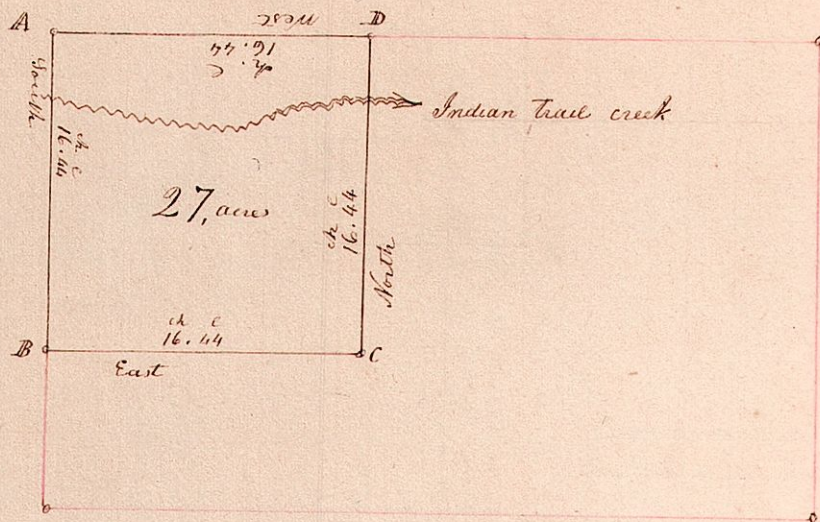 A
West
D
16.44
ch. l
South
ch l
16.44
Indian trail creek
27, acres
ch l
16.44
North
ch l
16.44
B
C
East